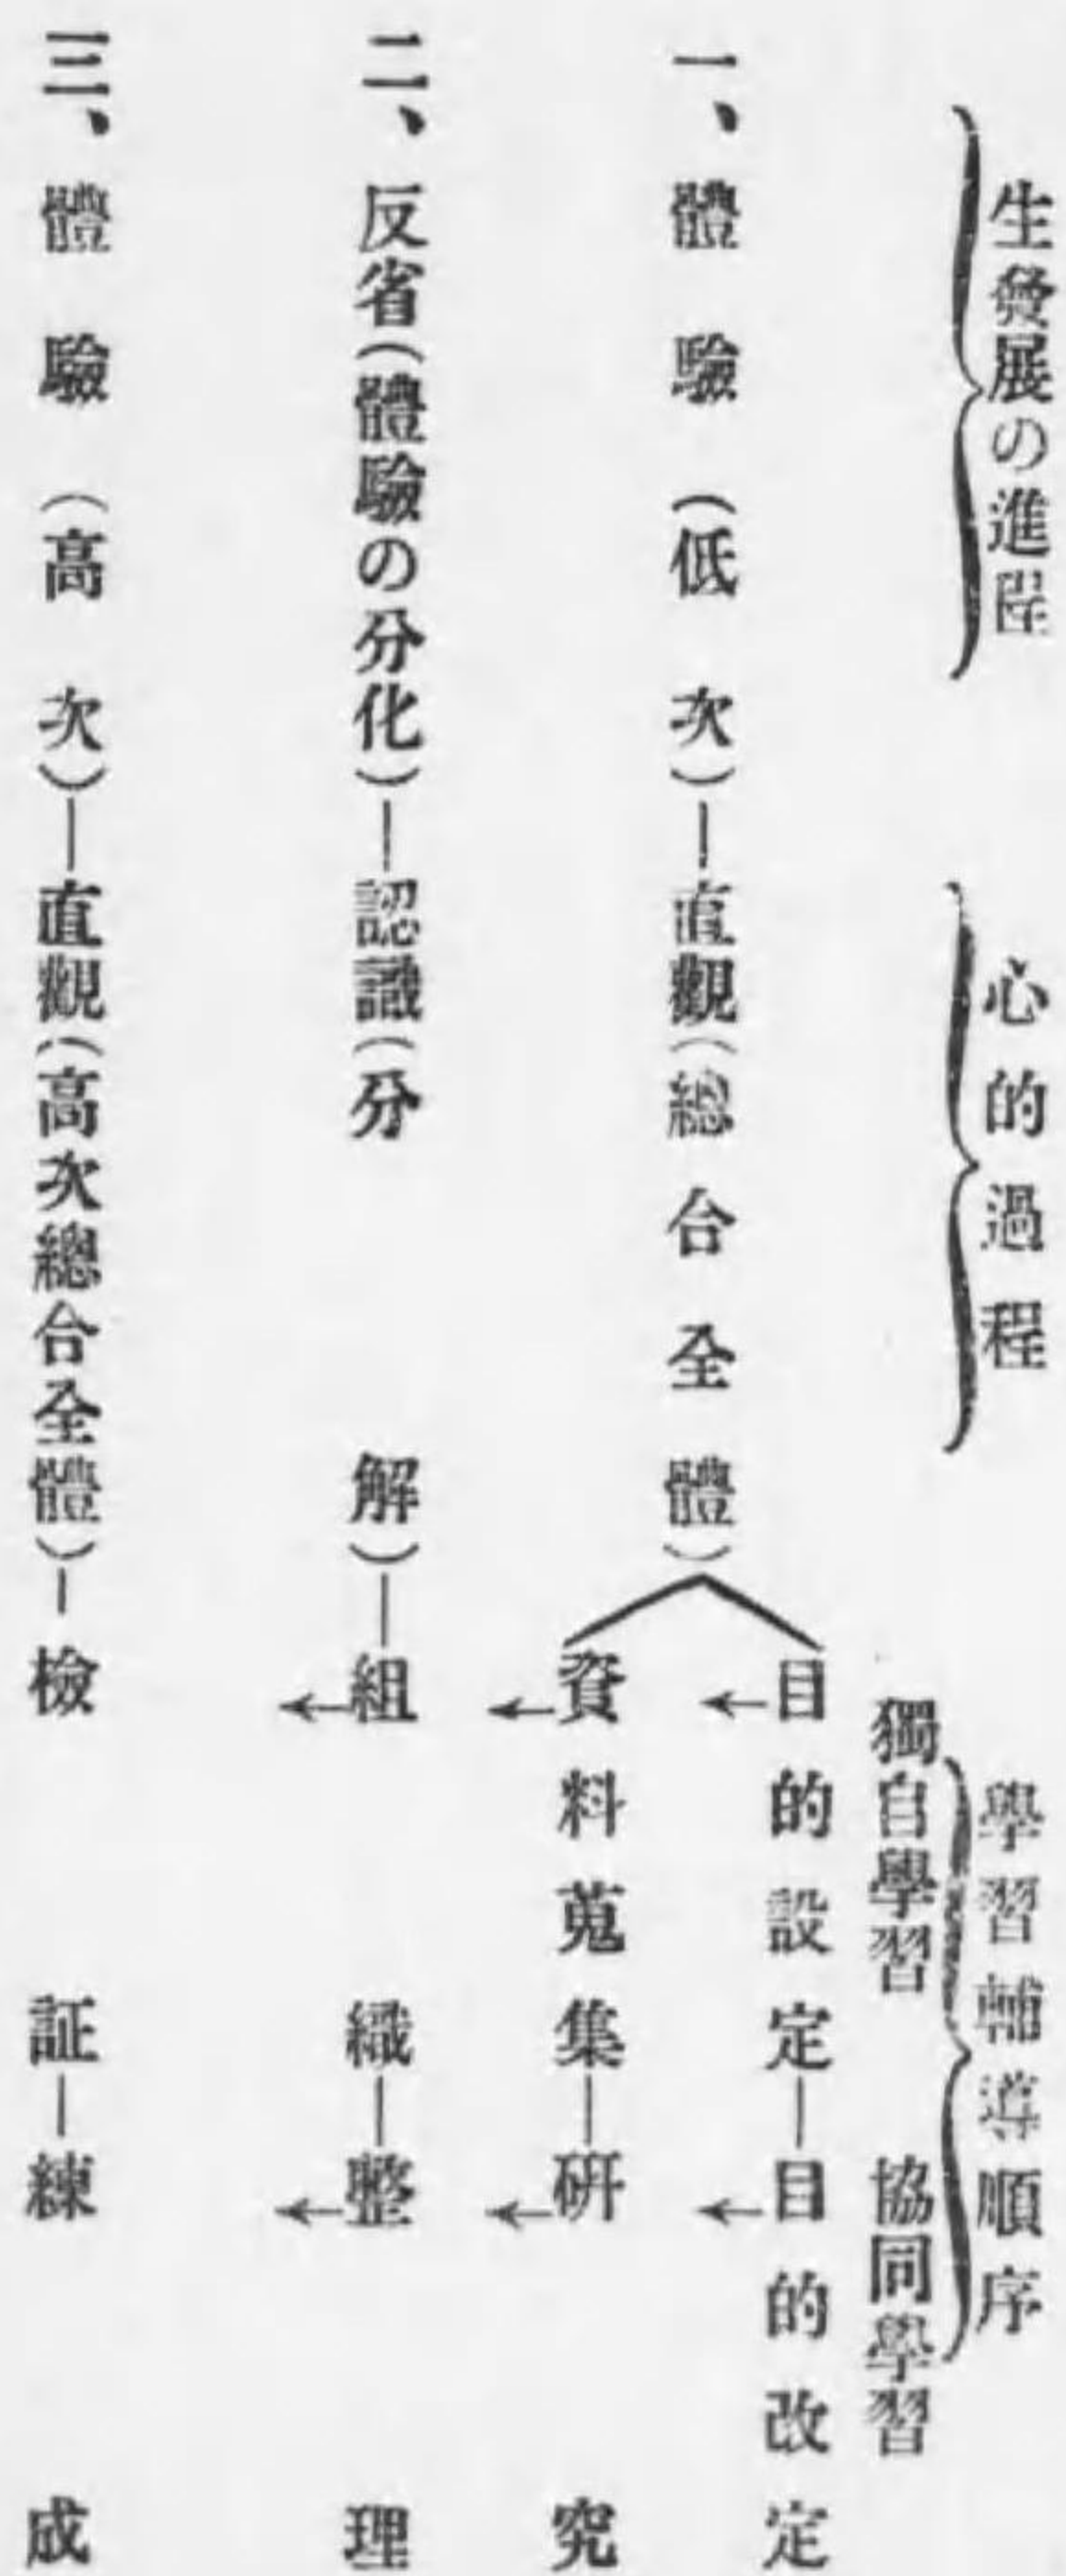 生發展の進程
心的過程
學習輔導順序
獨自學習 協同學習
一、體驗(低次)―直觀(總合全體)
目的設定―目的改定
資料蒐集―硏究
二、反省(體驗の分化)―認識(分解)―組織―整理
三、體驗(高次)―直觀(高次總合全體)―檢証―練成